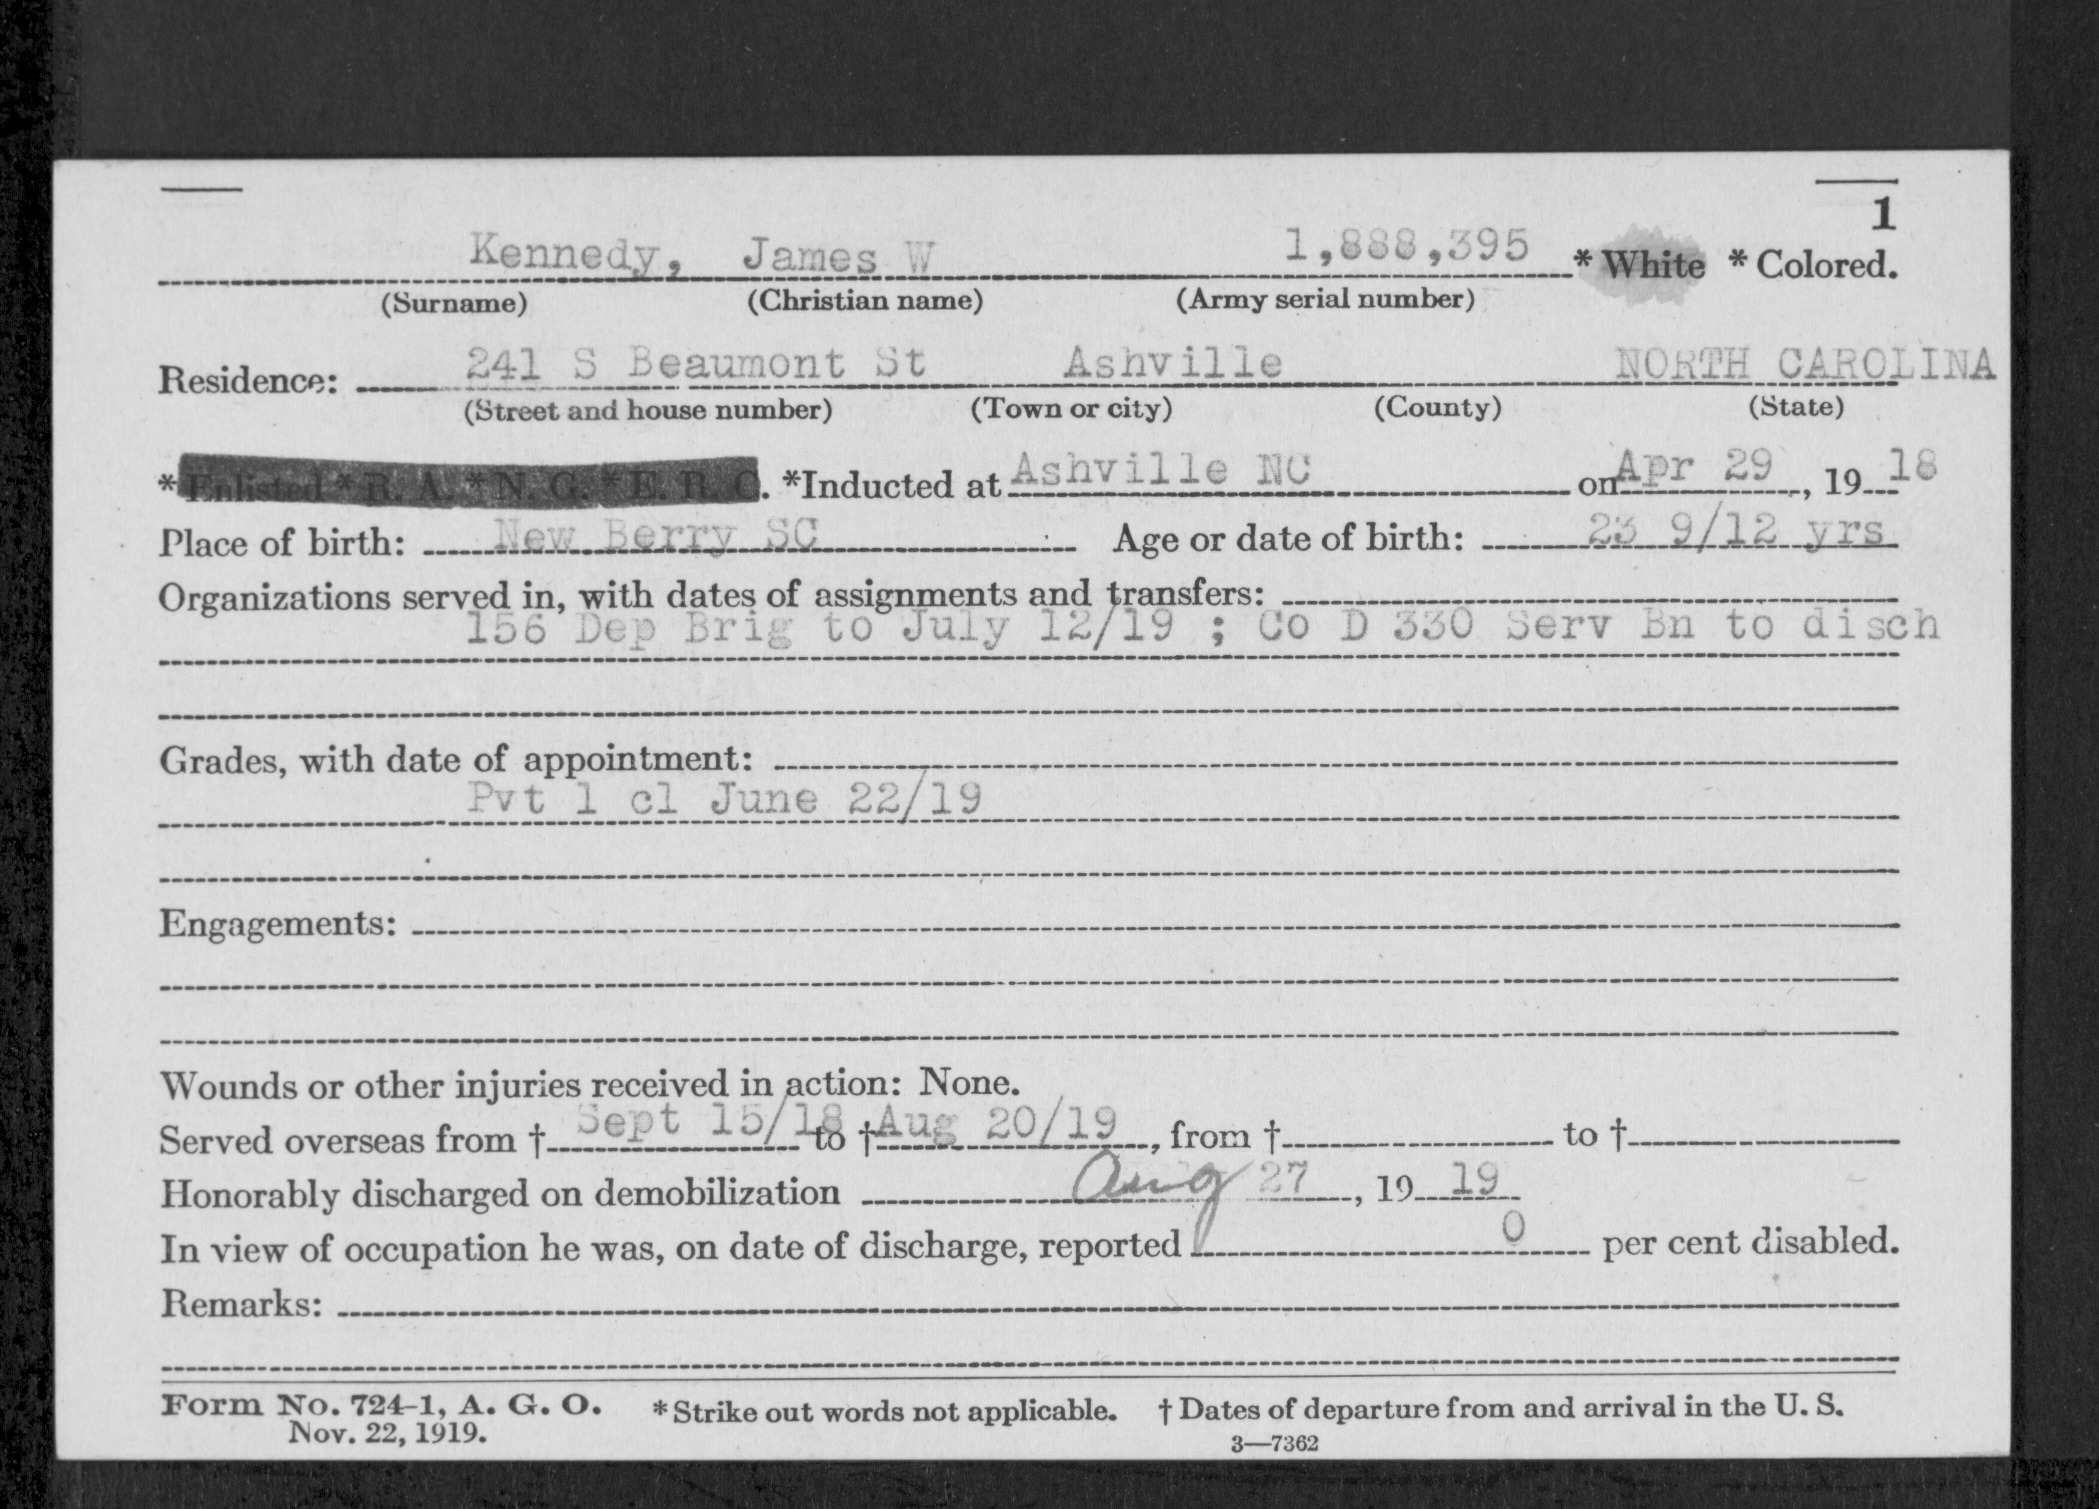 1
Kennedy, James W 1,888,395 * White * Colored.
(Surname) (Christian name) (Army serial number)
Residence: 241 S Beaumont St Ashville NORTH CAROLINA
(Street and house number) (Town or city) (County) (State)
*Enlisted *R. A. *N. G. *E. R. C. *Inducted at Ashville NC on Apr 29, 19 18
Place of birth: New Berry SC Age or date of birth: 23 9/12 yrs
Organizations served in, with dates of assignments and transfers:
156 Dep Brig to July 12/19 ; Co D 330 Serv Bn to disch
Grades, with date of appointment:
Pvt 1 cl June 22/19
Engagements:
Wounds or other injuries received in action: None.
Served overseas from † Sept 15/18 to † Aug 20/19, from † to †
Honorably discharged on demobilization Aug 27, 19 19
In view of occupation he was, on date of discharge, reported 0 per cent disabled.
Remarks:
Form No. 724-1, A. G. O. *Strike out words not applicable. † Dates of departure from and arrival in the U. S.
Nov. 22, 1919. 3—7362